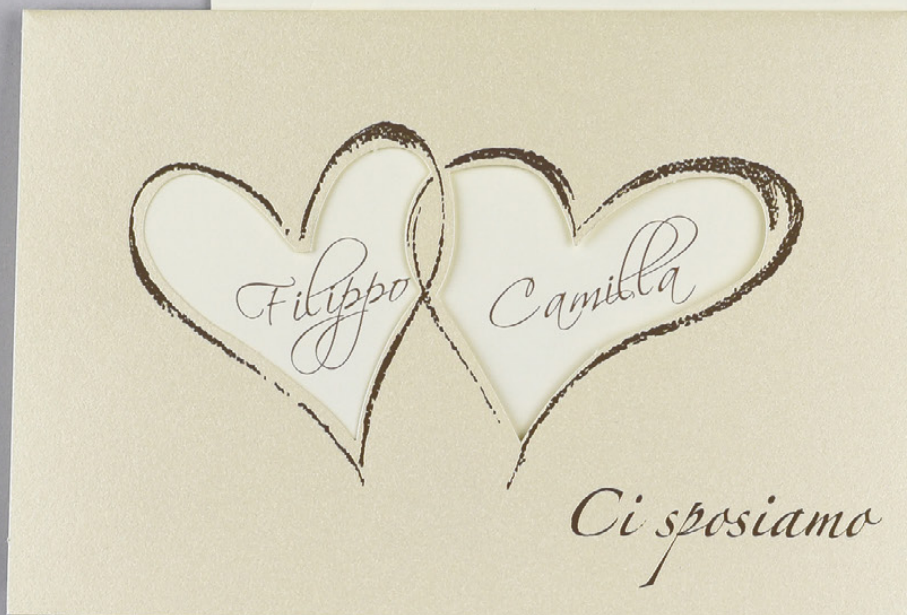 Filippo Camilla
Ci sposiamo